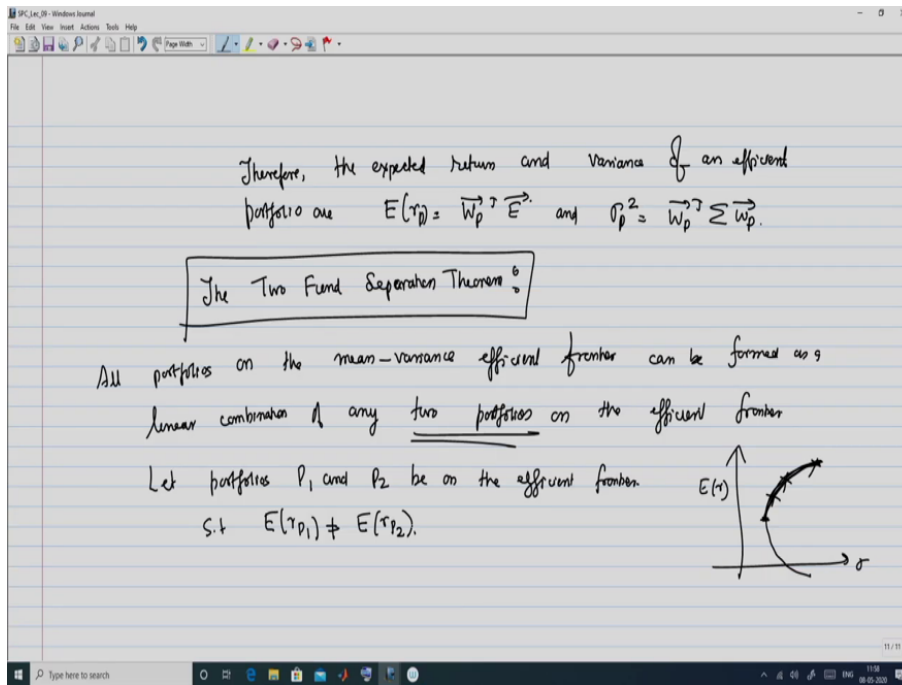 SPC_Lec_09 - Windows Journal
File Edit View Insert Actions Tools Help
Page Width
Therefore, the expected return and variance of an efficient
portfolio are E(r_p) = W_p^T E and σ_p^2 = W_p^T Σ W_p.
The Two Fund Separation Theorem:
All portfolios on the mean-variance efficient frontier can be formed as a
linear combination of any two portfolios on the efficient frontier
Let portfolios P_1 and P_2 be on the efficient frontier.
E(r)
s.t E(r_{P_1}) ≠ E(r_{P_2}).
σ
11/11
Type here to search
ENG
11:58
08-05-2020